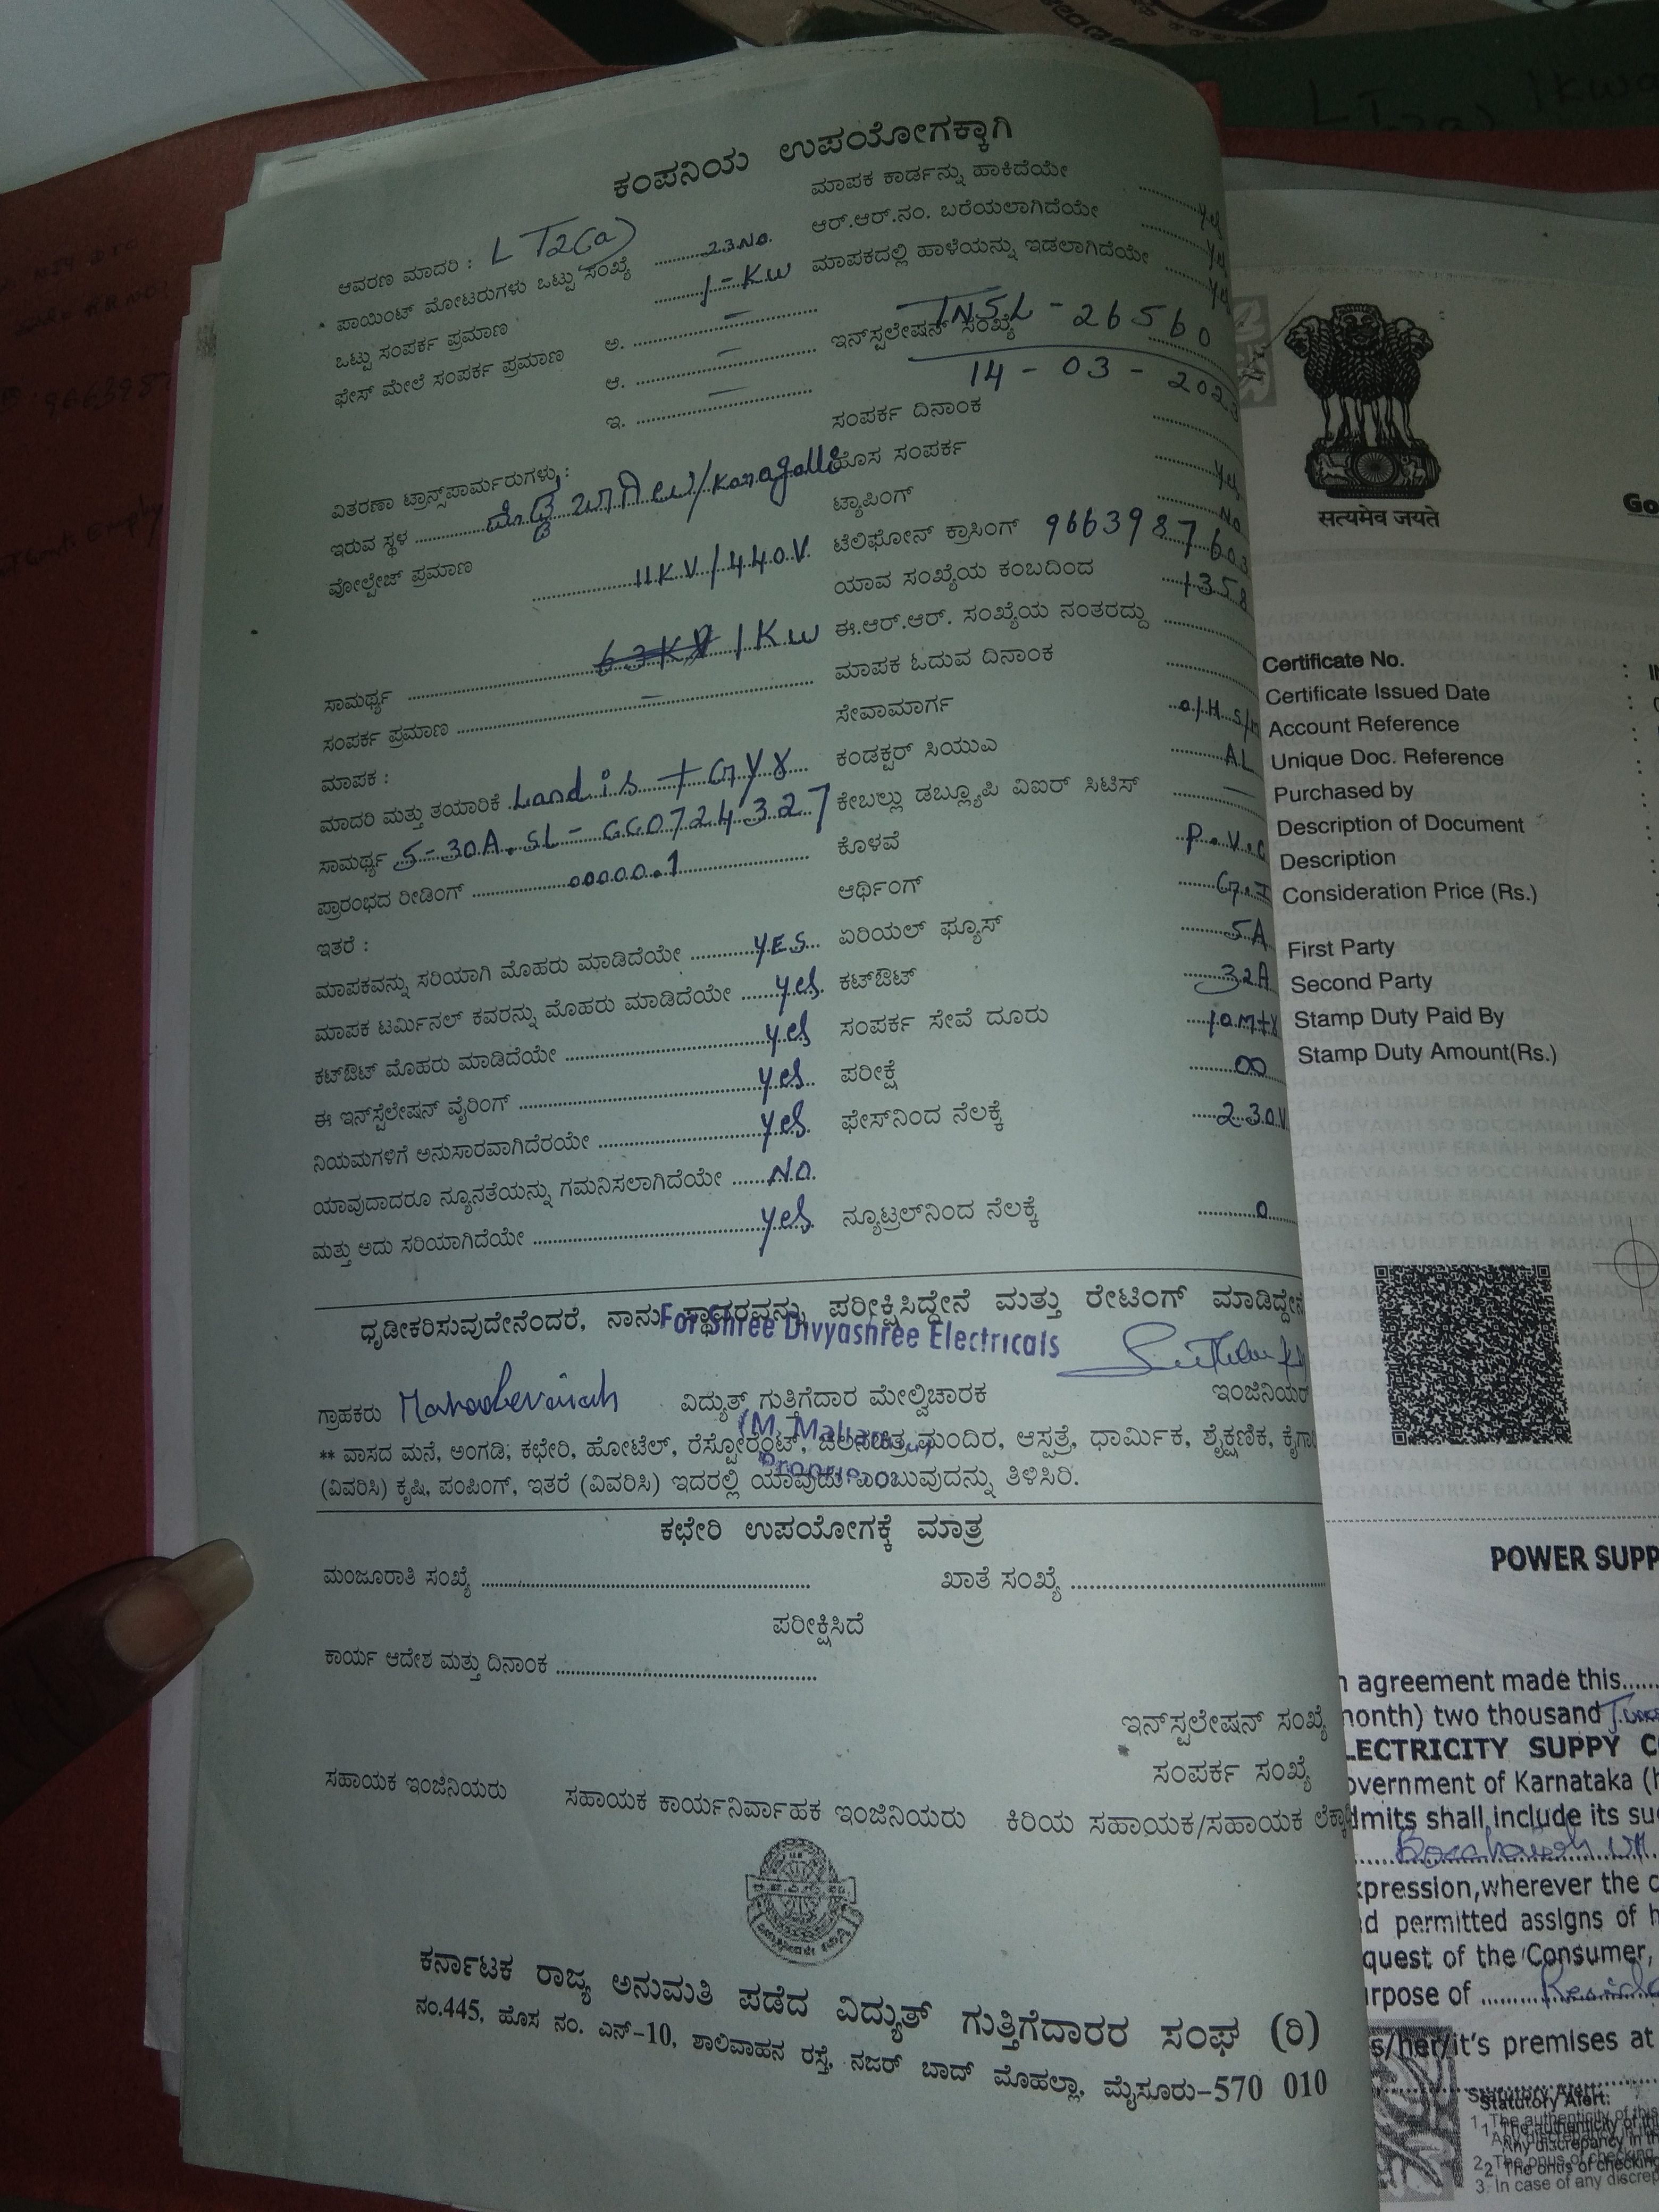 ಕಂಪನಿಯ ಉಪಯೋಗಕ್ಕಾಗಿ
ಆವರಣ ಮಾದರಿ : LT2(a)
ಪಾಯಿಂಟ್ ಮೋಟರುಗಳು ಒಟ್ಟು ಸಂಖ್ಯೆ ..... 23 No.
ಒಟ್ಟು ಸಂಪರ್ಕ ಪ್ರಮಾಣ ..... 1-KW
ಫೇಸ್ ಮೇಲೆ ಸಂಪರ್ಕ ಪ್ರಮಾಣ ಅ. ..... –
ಆ. ..... –
ಇ. ..... –
ವಿತರಣಾ ಟ್ರಾನ್ಸ್‌ಪಾರ್ಮರುಗಳು :
ಇರುವ ಸ್ಥಳ ..... ದೊಡ್ಡ ಬಾಗಿಲು/Kanagalli
ವೋಲ್ಟೇಜ್ ಪ್ರಮಾಣ ..... 11KV/440V
ಸಾಮರ್ಥ್ಯ ..... 1KW
ಸಂಪರ್ಕ ಪ್ರಮಾಣ ..... –
ಮಾಪಕ :
ಮಾದರಿ ಮತ್ತು ತಯಾರಿಕೆ Landis + Gyr
ಸಾಮರ್ಥ್ಯ 5-30A. SL- GG0724327
ಪ್ರಾರಂಭದ ರೀಡಿಂಗ್ ..... 00000.1
ಇತರೆ :
ಮಾಪಕವನ್ನು ಸರಿಯಾಗಿ ಮೊಹರು ಮಾಡಿದೆಯೇ ..... YES
ಮಾಪಕ ಟರ್ಮಿನಲ್ ಕವರನ್ನು ಮೊಹರು ಮಾಡಿದೆಯೇ ..... yes
ಕಟ್‌ಔಟ್ ಮೊಹರು ಮಾಡಿದೆಯೇ ..... yes
ಈ ಇನ್‌ಸ್ಪೆಲೇಷನ್ ವೈರಿಂಗ್ ..... yes
ನಿಯಮಗಳಿಗೆ ಅನುಸಾರವಾಗಿದೆರಯೇ ..... yes
ಯಾವುದಾದರೂ ನ್ಯೂನತೆಯನ್ನು ಗಮನಿಸಲಾಗಿದೆಯೇ ..... No
ಮತ್ತು ಅದು ಸರಿಯಾಗಿದೆಯೇ ..... yes
ಮಾಪಕ ಕಾರ್ಡನ್ನು ಹಾಕಿದೆಯೇ ..... yes
ಆರ್.ಆರ್.ನಂ. ಬರೆಯಲಾಗಿದೆಯೇ ..... yes
ಮಾಪಕದಲ್ಲಿ ಹಾಳೆಯನ್ನು ಇಡಲಾಗಿದೆಯೇ ..... yes
ಇನ್‌ಸ್ಪಲೇಷನ್ ಸಂಖ್ಯೆ INSL-26560
14-03-2023
ಸಂಪರ್ಕ ದಿನಾಂಕ
ಹೊಸ ಸಂಪರ್ಕ ..... yes
ಟ್ಯಾಪಿಂಗ್ ..... No
ಟೆಲಿಫೋನ್ ಕ್ರಾಸಿಂಗ್ 9663987603
ಯಾವ ಸಂಖ್ಯೆಯ ಕಂಬದಿಂದ ..... 1358
ಈ.ಆರ್.ಆರ್. ಸಂಖ್ಯೆಯ ನಂತರದ್ದು .....
ಮಾಪಕ ಓದುವ ದಿನಾಂಕ .....
ಸೇವಾಮಾರ್ಗ ..... o/H s/m
ಕಂಡಕ್ಟರ್ ಸಿಯುಎ ..... AL
ಕೇಬಲ್ಲು ಡಬ್ಲ್ಯೂಪಿ ವಿಐರ್ ಸಿಟಿಸ್ ..... –
ಕೊಳವೆ ..... P.V.C
ಆರ್ಥಿಂಗ್ ..... G.I
ಏರಿಯಲ್ ಫ್ಯೂಸ್ ..... 5A
ಕಟ್‌ಔಟ್ ..... 32A
ಸಂಪರ್ಕ ಸೇವೆ ದೂರು ..... 10mtr
ಪರೀಕ್ಷೆ ..... ∞
ಫೇಸ್‌ನಿಂದ ನೆಲಕ್ಕೆ ..... 230V
ನ್ಯೂಟ್ರಲ್‌ನಿಂದ ನೆಲಕ್ಕೆ ..... 0
ಧೃಡೀಕರಿಸುವುದೇನೆಂದರೆ, ನಾನು ಸ್ಥಾವರವನ್ನು ಪರೀಕ್ಷಿಸಿದ್ದೇನೆ ಮತ್ತು ರೇಟಿಂಗ್ ಮಾಡಿದ್ದೇನೆ
For Shree Divyashree Electricals
ಗ್ರಾಹಕರು Mahadevaiah ವಿದ್ಯುತ್ ಗುತ್ತಿಗೆದಾರ ಮೇಲ್ವಿಚಾರಕ ಇಂಜಿನಿಯರ್
** ವಾಸದ ಮನೆ, ಅಂಗಡಿ, ಕಛೇರಿ, ಹೋಟೆಲ್, ರೆಸ್ಟೋರಂಟ್, ಚಲನಚಿತ್ರ ಮಂದಿರ, ಆಸ್ಪತ್ರೆ, ಧಾರ್ಮಿಕ, ಶೈಕ್ಷಣಿಕ,
(ವಿವರಿಸಿ) ಕೃಷಿ, ಪಂಪಿಂಗ್, ಇತರೆ (ವಿವರಿಸಿ) ಇದರಲ್ಲಿ ಯಾವುದು ಎಂಬುವುದನ್ನು ತಿಳಿಸಿರಿ.
ಕಛೇರಿ ಉಪಯೋಗಕ್ಕೆ ಮಾತ್ರ
ಮಂಜೂರಾತಿ ಸಂಖ್ಯೆ ..... ಖಾತೆ ಸಂಖ್ಯೆ .....
ಪರೀಕ್ಷಿಸಿದೆ
ಕಾರ್ಯ ಆದೇಶ ಮತ್ತು ದಿನಾಂಕ .....
ಇನ್‌ಸ್ಪಲೇಷನ್ ಸಂಖ್ಯೆ
ಸಂಪರ್ಕ ಸಂಖ್ಯೆ
ಸಹಾಯಕ ಇಂಜಿನಿಯರು ಸಹಾಯಕ ಕಾರ್ಯನಿರ್ವಾಹಕ ಇಂಜಿನಿಯರು ಕಿರಿಯ ಸಹಾಯಕ/ಸಹಾಯಕ
ಕರ್ನಾಟಕ ರಾಜ್ಯ ಅನುಮತಿ ಪಡೆದ ವಿದ್ಯುತ್ ಗುತ್ತಿಗೆದಾರರ ಸಂಘ (ರಿ)
ನಂ.445, ಹೊಸ ನಂ. ಎನ್-10, ಶಾಲಿವಾಹನ ರಸ್ತೆ, ನಜರ್ ಬಾದ್ ಮೊಹಲ್ಲಾ, ಮೈಸೂರು-570 010
सत्यमेव जयते
Certificate No. :
Certificate Issued Date :
Account Reference :
Unique Doc. Reference :
Purchased by
Description of Document
Description
Consideration Price (Rs.)
First Party
Second Party
Stamp Duty Paid By
Stamp Duty Amount(Rs.)
POWER SUPP
agreement made this.....
month) two thousand
LECTRICITY SUPPLY
overnment of Karnataka
dmits shall include its
xpression,wherever the
d permitted assigns of
quest of the Consumer,
rpose of .....
s/her/it's premises at
Statutory Alert:
1. The authenticity of this
Any discrepancy in
2. The onus of checking
3. In case of any